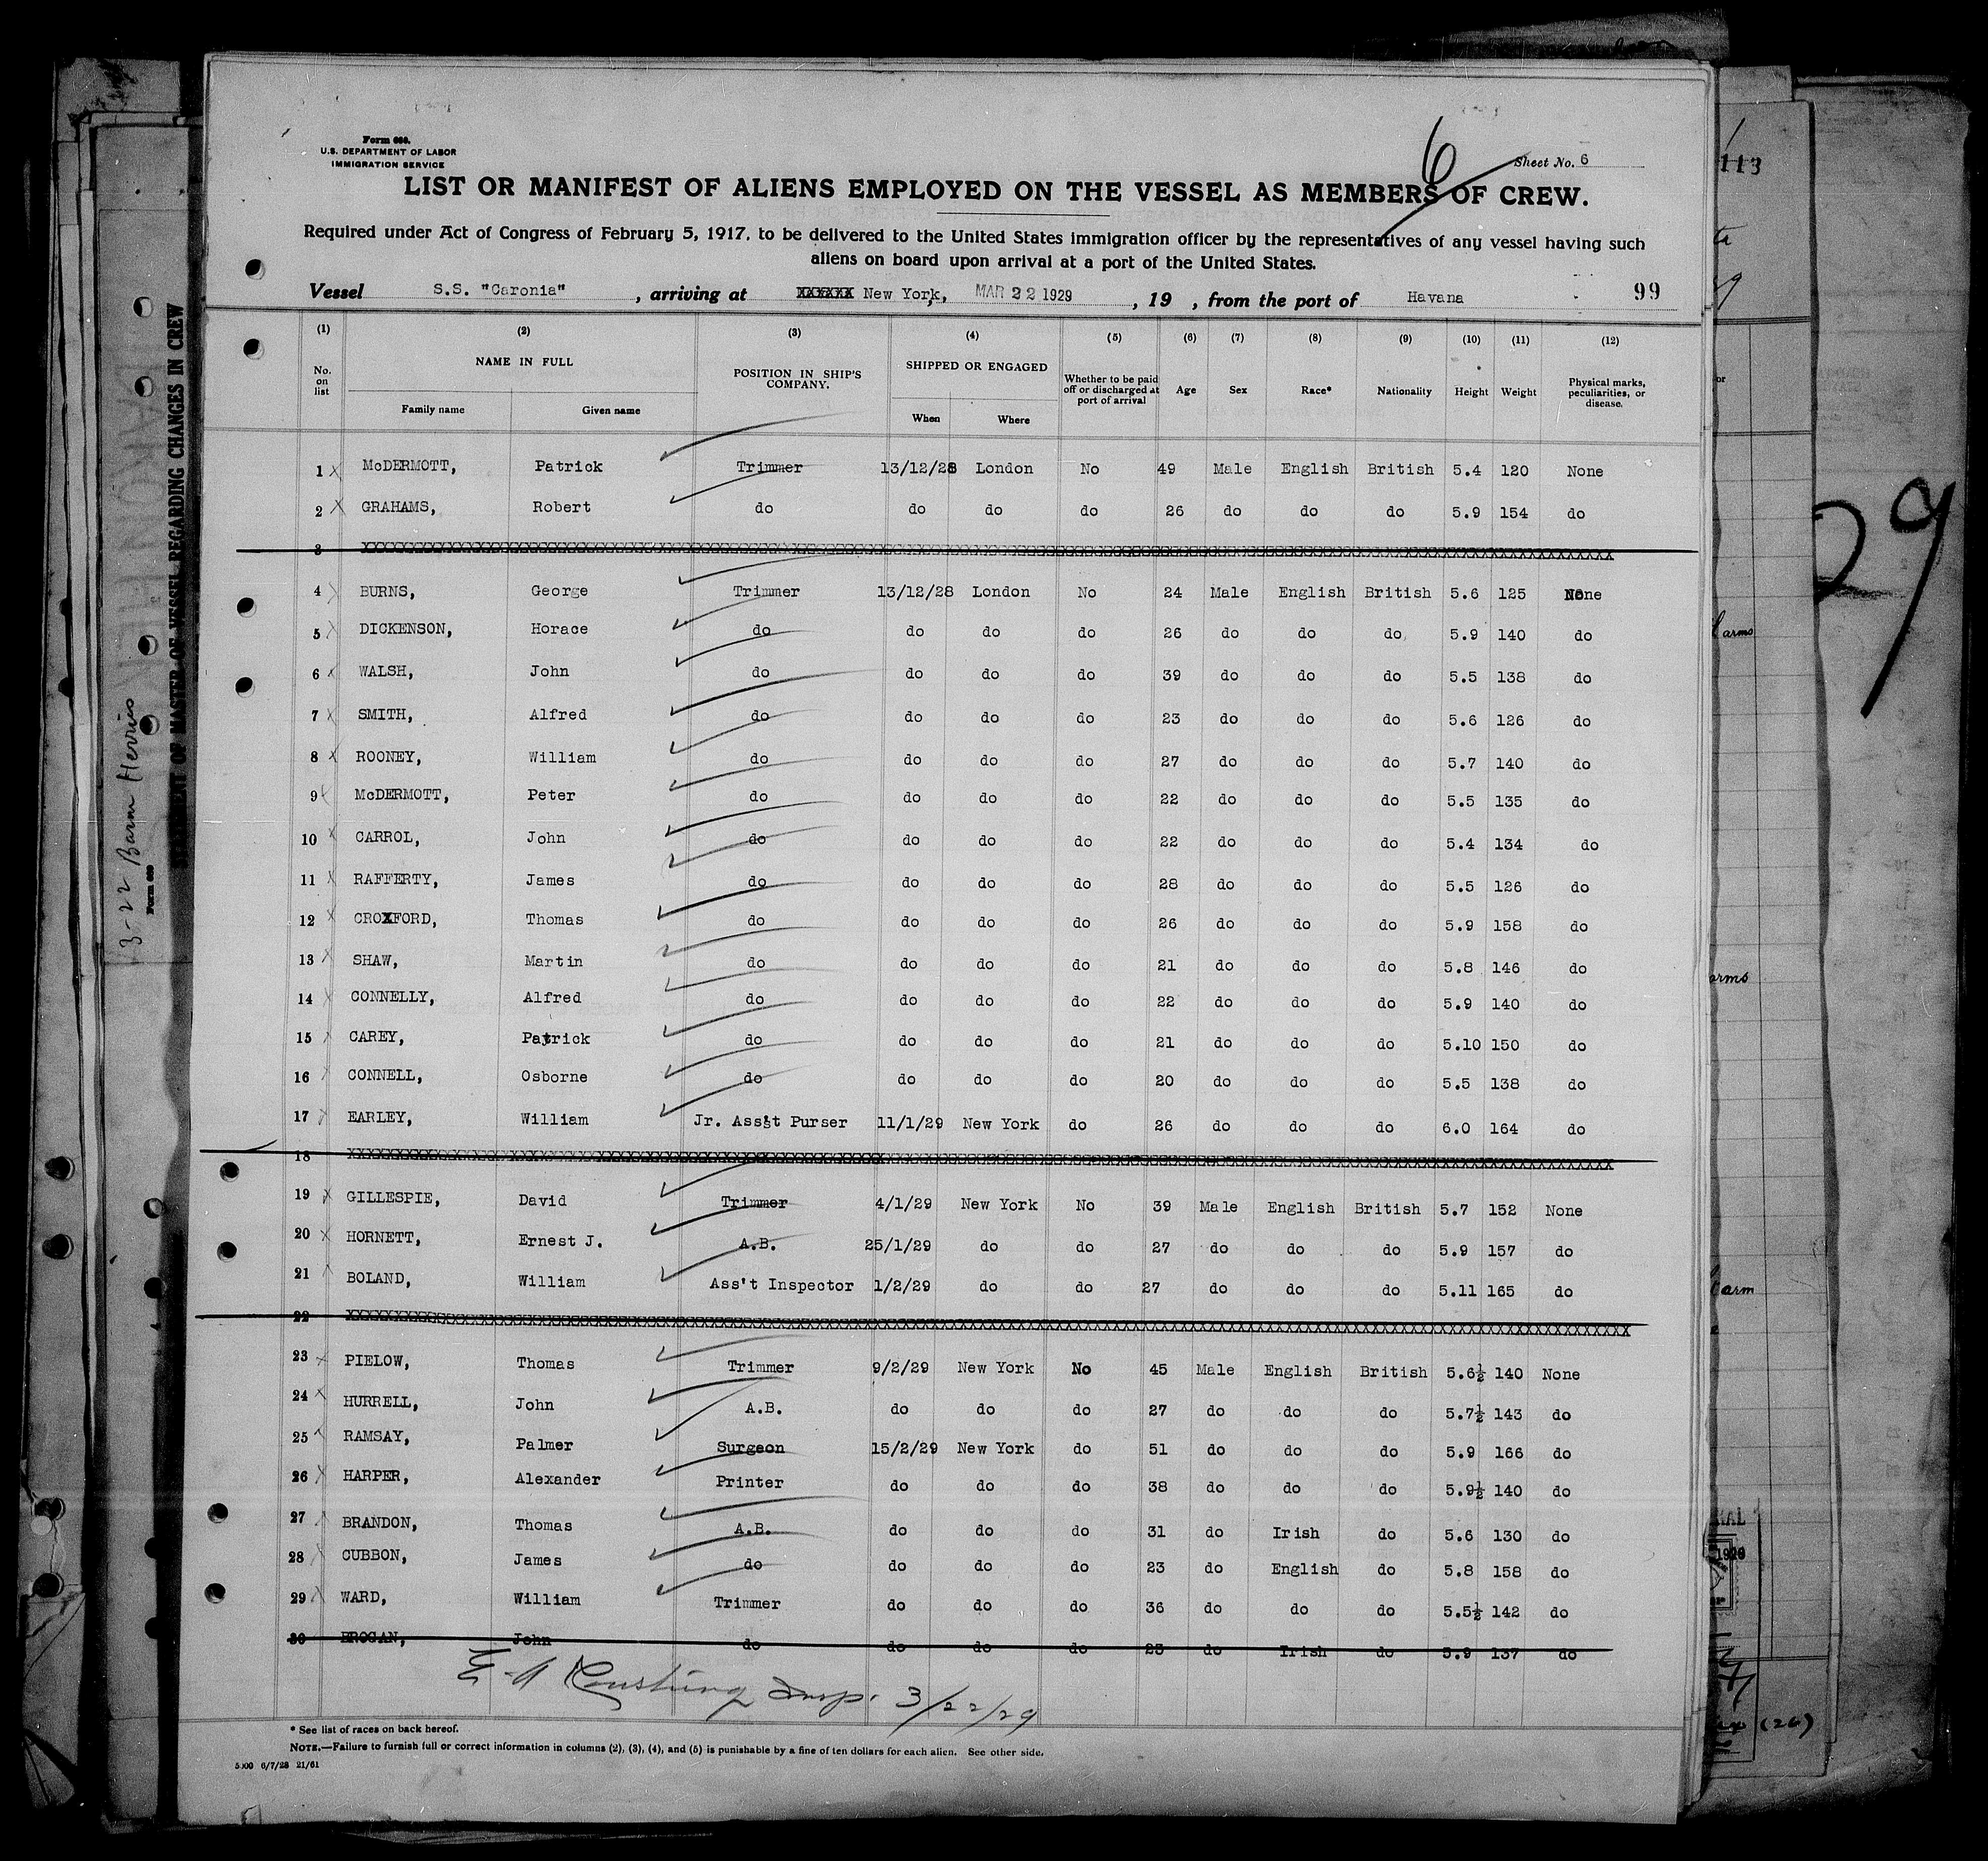 Form 680.
U.S. DEPARTMENT OF LABOR
IMMIGRATION SERVICE
6
Sheet No. 6
LIST OR MANIFEST OF ALIENS EMPLOYED ON THE VESSEL AS MEMBERS OF CREW.
Required under Act of Congress of February 5, 1917, to be delivered to the United States immigration officer by the representatives of any vessel having such
aliens on board upon arrival at a port of the United States.
Vessel S.S. "Caronia" , arriving at XXXXXX New York, MAR 22 1929 , 19 , from the port of Havana 99
(1) (2) (3) (4) (5) (6) (7) (8) (9) (10) (11) (12)
No. on list NAME IN FULL Family name Given name POSITION IN SHIP'S COMPANY. SHIPPED OR ENGAGED When Where Whether to be paid off or discharged at port of arrival Age Sex Race* Nationality Height Weight Physical marks, peculiarities, or disease.
1 McDERMOTT, Patrick Trimmer 13/12/28 London No 49 Male English British 5.4 120 None
2 GRAHAMS, Robert do do do do 26 do do do 5.9 154 do
3
4 BURNS, George Trimmer 13/12/28 London No 24 Male English British 5.6 125 None
5 DICKENSON, Horace do do do do 26 do do do 5.9 140 do
6 WALSH, John do do do do 39 do do do 5.5 138 do
7 SMITH, Alfred do do do do 23 do do do 5.6 126 do
8 ROONEY, William do do do do 27 do do do 5.7 140 do
9 McDERMOTT, Peter do do do do 22 do do do 5.5 135 do
10 CARROL, John do do do do 22 do do do 5.4 134 do
11 RAFFERTY, James do do do do 28 do do do 5.5 126 do
12 CROXFORD, Thomas do do do do 26 do do do 5.9 158 do
13 SHAW, Martin do do do do 21 do do do 5.8 146 do
14 CONNELLY, Alfred do do do do 22 do do do 5.9 140 do
15 CAREY, Patrick do do do do 21 do do do 5.10 150 do
16 CONNELL, Osborne do do do do 20 do do do 5.5 138 do
17 EARLEY, William Jr. Ass't Purser 11/1/29 New York do 26 do do do 6.0 164 do
18
19 GILLESPIE, David Trimmer 4/1/29 New York No 39 Male English British 5.7 152 None
20 HORNETT, Ernest J. A.B. 25/1/29 do do 27 do do do 5.9 157 do
21 BOLAND, William Ass't Inspector 1/2/29 do do 27 do do do 5.11 165 do
22
23 PIELOW, Thomas Trimmer 9/2/29 New York No 45 Male English British 5.6½ 140 None
24 HURRELL, John A.B. do do do 27 do do do 5.7½ 143 do
25 RAMSAY, Palmer Surgeon 15/2/29 New York do 51 do do do 5.9 166 do
26 HARPER, Alexander Printer do do do 38 do do do 5.9½ 140 do
27 BRANDON, Thomas A.B. do do do 31 do Irish do 5.6 130 do
28 CUBBON, James do do do do 23 do English do 5.8 158 do
29 WARD, William Trimmer do do do 36 do do do 5.5½ 142 do
30 BROGAN, John do do do do 23 do Irish do 5.9 137 do
Insp. 3/22/29
* See list of races on back hereof.
NOTE.—Failure to furnish full or correct information in columns (2), (3), (4), and (5) is punishable by a fine of ten dollars for each alien. See other side.
6/7/28 21/61
STATEMENT OF MASTER OF VESSEL REGARDING CHANGES IN CREW
3-22
Form 689
113
29
arms
arms
arm
1929
(26)